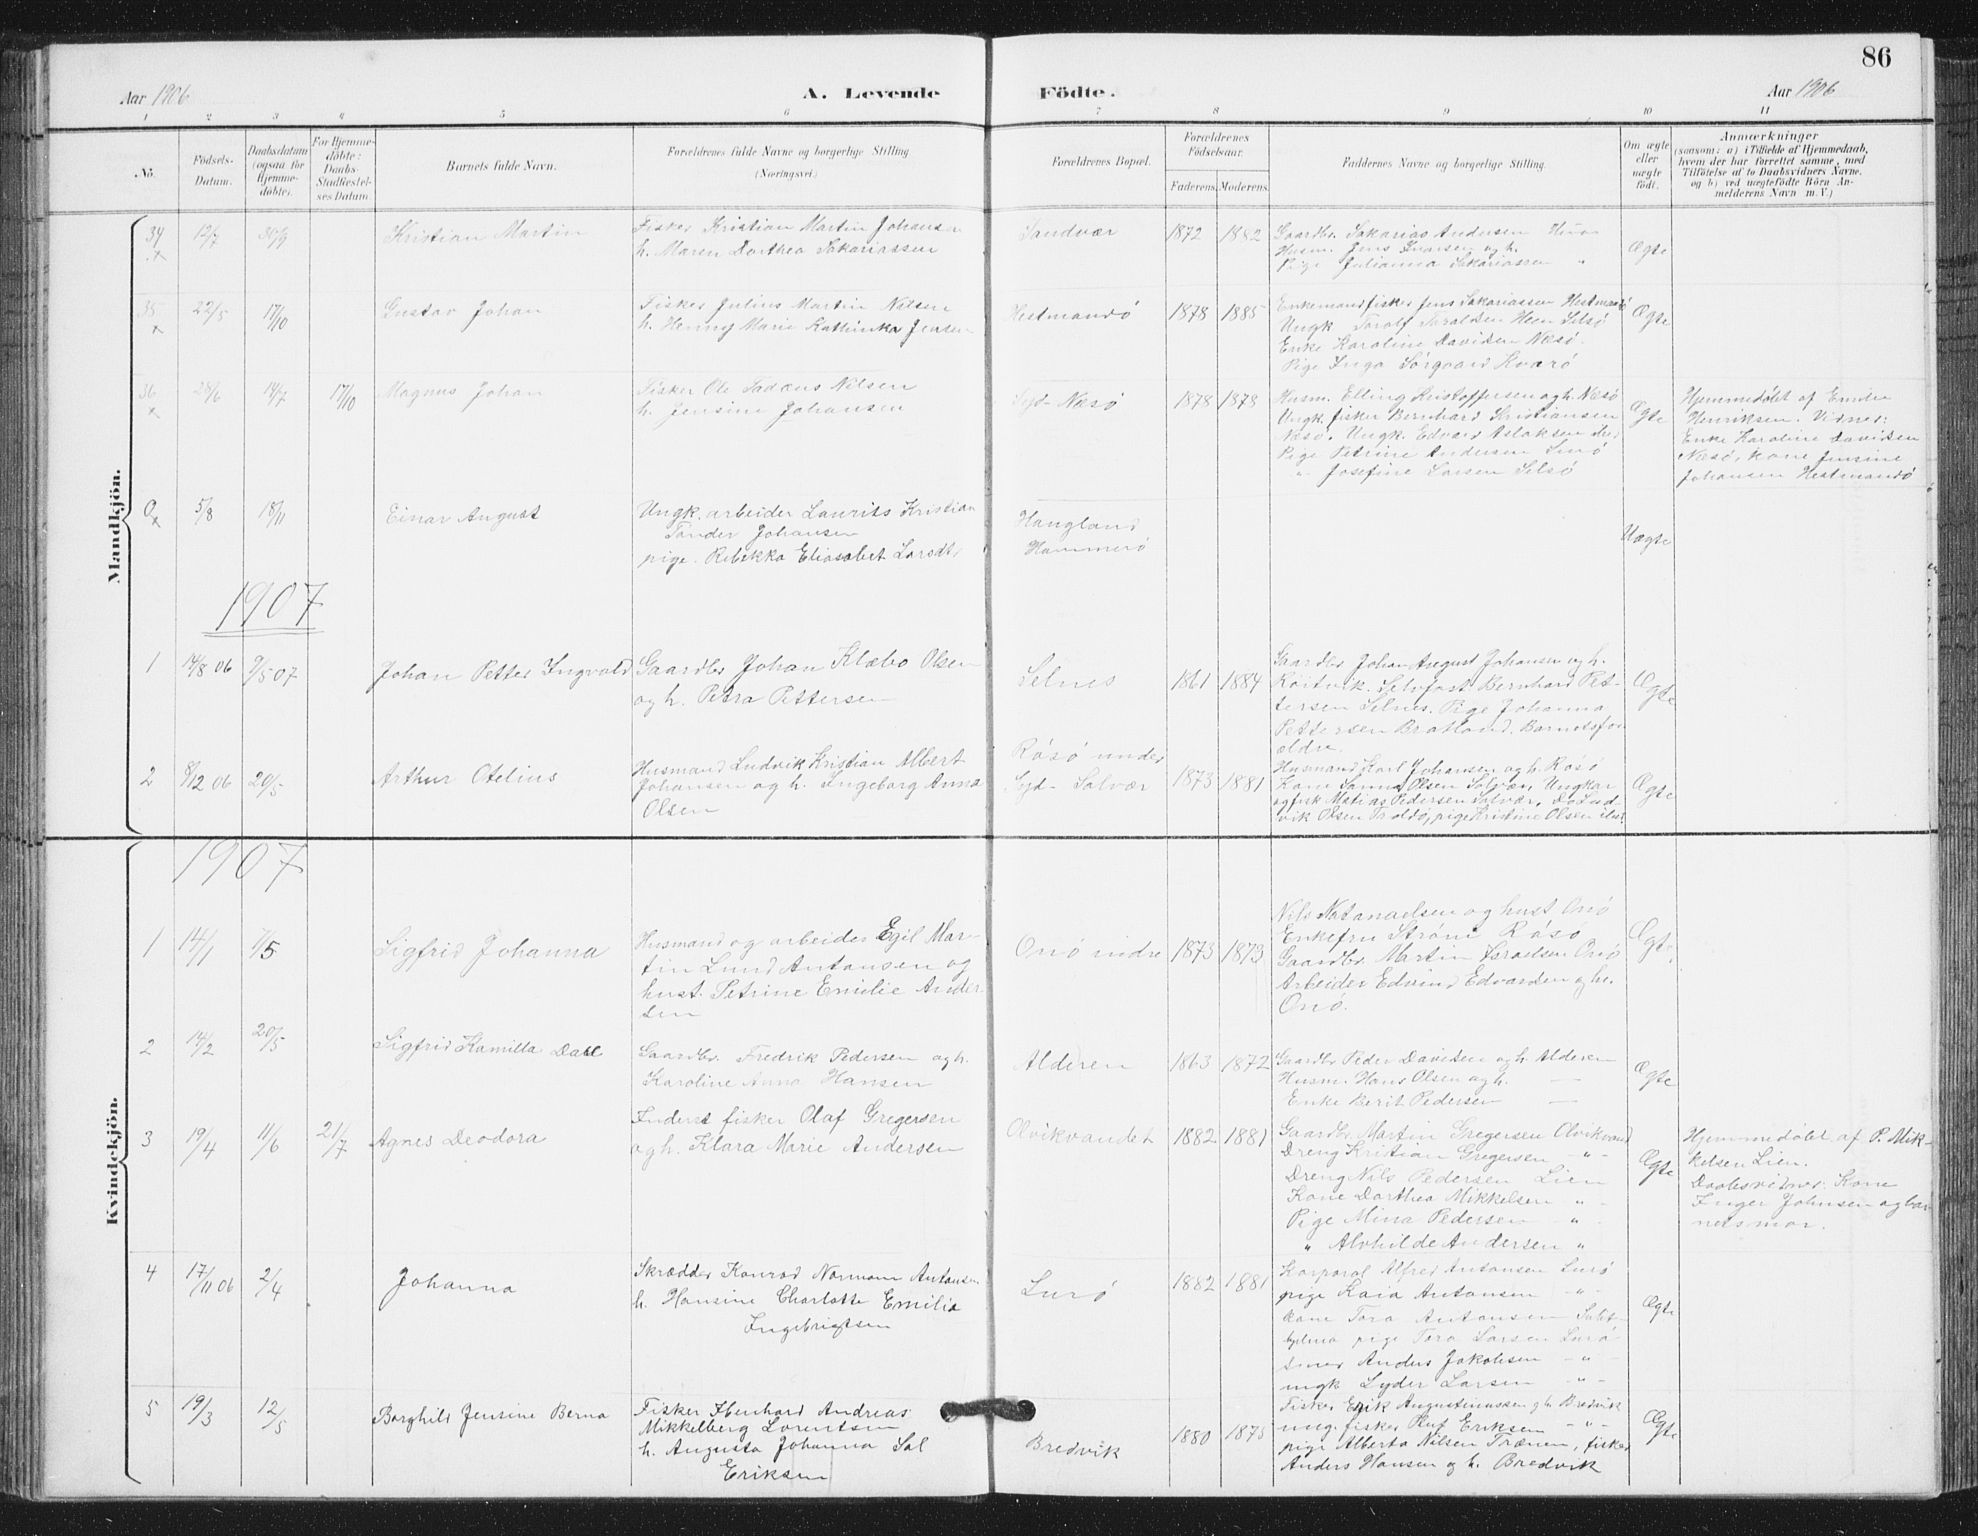 86
Aar 1906 A. Levende Födte. Aar 1906
1 2 3 4 5 6 7 8 9 10 11
No.
Födsels-Datum.
Daabsdatum (ogsaa for Hjemmedöbte).
For Hjemmedöbte: Daabs-Stadfæstelses Datum.
Barnets fulde Navn.
Forældrenes fulde Navne og borgerlige Stilling (Næringsvei.)
Forældrenes Bopæl.
Forældrenes Födselsaar.
Faderens. Moderens.
Faddernes Navne og borgerlige Stilling.
Om ægte eller uægte födt.
Anmærkninger
(saasom: a) i Tilfælde af Hjemmedaab, hvem der har forrettet samme, med Tilföielse af to Daabsvidners Navne, og b) ved uægtefödte Börn Anmelderens Navn m. V.)
Mandkjön.
34 12/7 30/9 Kristian Martin
Fisker Kristian Martin Johansen
h. Maren Dorthea Sakariassen
Sandvær 1872 1882
Gaardbr. Sakarias Andersen
Husm. Jens Ivarsen og h.
Pige Julianna Sakariassen "
Ægte
35 22/5 17/10 Gustav Johan
Fisker Julius Martin Nilsen
h. Henny Marie Kathinka Jensen
Hestmandö 1878 1885
Enkemand fisker Jens Sakariassen Hestmandö
Ungk Torolf Toraldsen Selsö
Enke Karoline Davidsen Næsö.
Pige Inga Sörgaard Kvarö
Ægte
36 28/6 14/7 17/10 Magnus Johan
Fisker Ole Tadæus Nilsen
h. Jensine Johansen
Syd-Næsö 1878 1878
Husm. Elling Kristoffersen og h. Næsö
Ungk. fisker Bernhard Kristiansen
Næsö. Ungk. Edvard Aslaksen
Pige Petrine Andersen Lurö
" Josefine Larsen Selsö
Ægte
Hjemmedöbt af Emilie
Henriksen. Vidner:
Enke Karoline Davidsen
Næsö, kone Jensine
Johansen Hestmandö
0 5/8 18/11 Einar August
Ungk. arbeider Laurits Kristian
Tander Johansen
pige. Rebekka Eliasabet Lorodt
Haugland
Hammerö
Uægte
1907
1 14/8 06 9/5 07 Johan Petter Ingvald
Gaardbr Johan Klæbo Olsen
og h. Petra Pettersen
Selnes 1861 1884
Gaardbr Johan August Johansen og h.
Kvitvik. Selvfost. Bernhard Pet-
tersen Selnes. Pige Johanna
Pettersen Bratland. Barnetsfor
ældre.
Ægte
2 8/12 06 20/5 Arthur Otelius
Husmand Ludvik Kristian Albert
Johansen og h. Ingeborg Anna
Olsen
Råsö under
Syd-Solvær 1873 1881
Husmand Karl Johansen og h. Rosö
Kone Sanna Olsen Solvær, Ungkar
og fisk Matias Pedersen Solvær, Do Lud-
vik Olsen, pige Kristine Olsen
Ægte
Kvindekjön.
1907
1 14/1 7/5 Sigfrid Johanna
Husmand og arbeider Egil Mar-
tin Lund Antonsen og
hust. Petrine Emilie Ander
sen
Onö indre 1873 1873
Nils Natanaelsen og hust Onö
Enkefru Ströni Råsö
Gaardbr. Martin Israelsen Onö
Arbeider Edvind Edvardsen og h.
Onö.
Ægte
2 14/2 20/5 Sigfrid Kamilla Dall
Gaardbr. Fredrik Pedersen og h.
Karoline Anna Hansen
Alderen 1863 1872
Gaardbr Peder Davidsen og h. Alderen
Husm. Hans Olsen og h. —
Enke Berit Pedersen —
Ægte
3 19/4 11/6 21/7 Agnes Deodora
Inderst fisker Olaf Gregersen
og h. Klara Marie Andersen
Olvikvandet 1882 1881
Gaardbr. Martin Gregersen Olvikvand
Dreng Kristian Gregersen - " -
Dreng Nils Pedersen Lien
Kone Dorthea Mikkelsen "
Pige Mina Pedersen "
" Alvhilde Andersen "
Ægte
Hjemmedöbt af P. Mik-
kelsen Lien.
Daabsvidner: Kone
Inger Johnsen og bar
netsmor.
4 17/11 06 2/4 Johanna
Skrædder Konrad Normann Antonsen
h. Hansine Charlotte Emilie
Ingebrigtsen
Lurö 1882 1881
Korporal Alfred Antonsen Lurö
pige Kaia Antonsen - " -
kone Tora Antonsen
pige Tora Larsen Lurö
Anders Jakobsen - " -
ungk Lyder Larsen - " -
Ægte
5 19/3 12/5 Borghild Jensine Berna
Fisker Ebenhard Andreas
Mikkelberg Lorentsen
h. Augusta Johanna Sol
Eriksen
Bredvik 1880 1875
Fisker Erik Augustinussen og h Bredvik
ung. fisker Oluf Eriksen - " -
pige Alberta Nilsen Trænen, fisker
Anders Hansen og h. Bredvik
Ægte